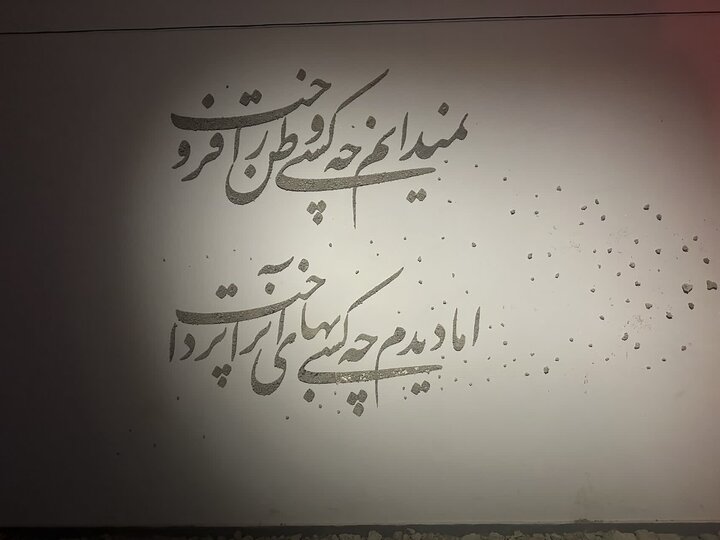 نمیدانم چه کسی وطن را فروخت
اما دیدم چه کسی بهای آنرا پرداخت